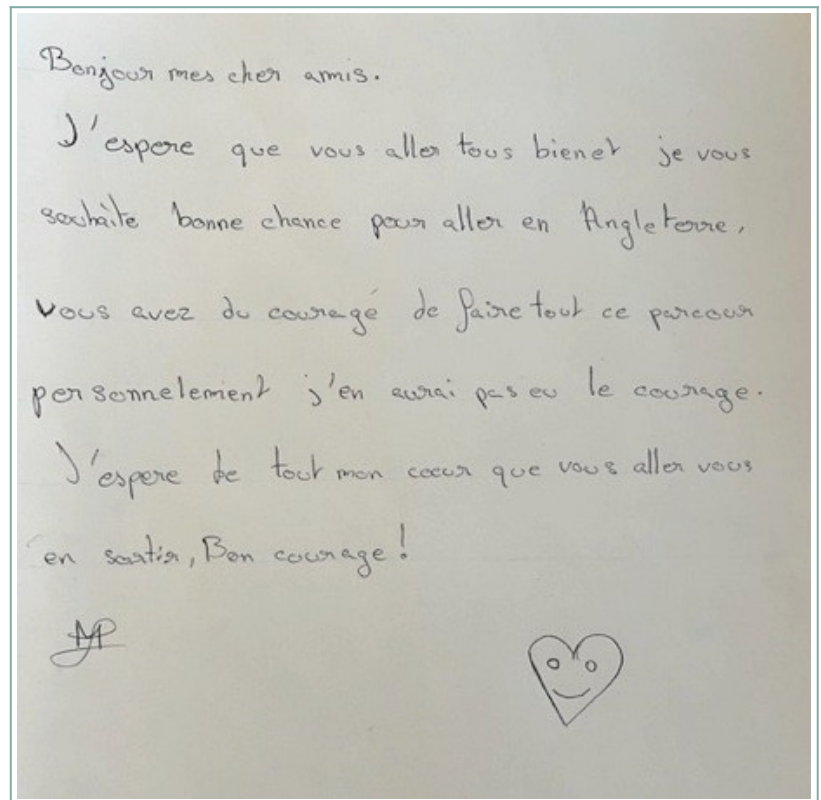 Bonjour mes cher amis.
J'espere que vous aller tous bienet je vous
souhaite bonne chance pour aller en Angleterre,
Vous avez du couragé de faire tout ce parcour
personnelement j'en aurai pas eu le courage.
J'espere de tout mon coeur que vous aller vous
en sortir, Bon courage!